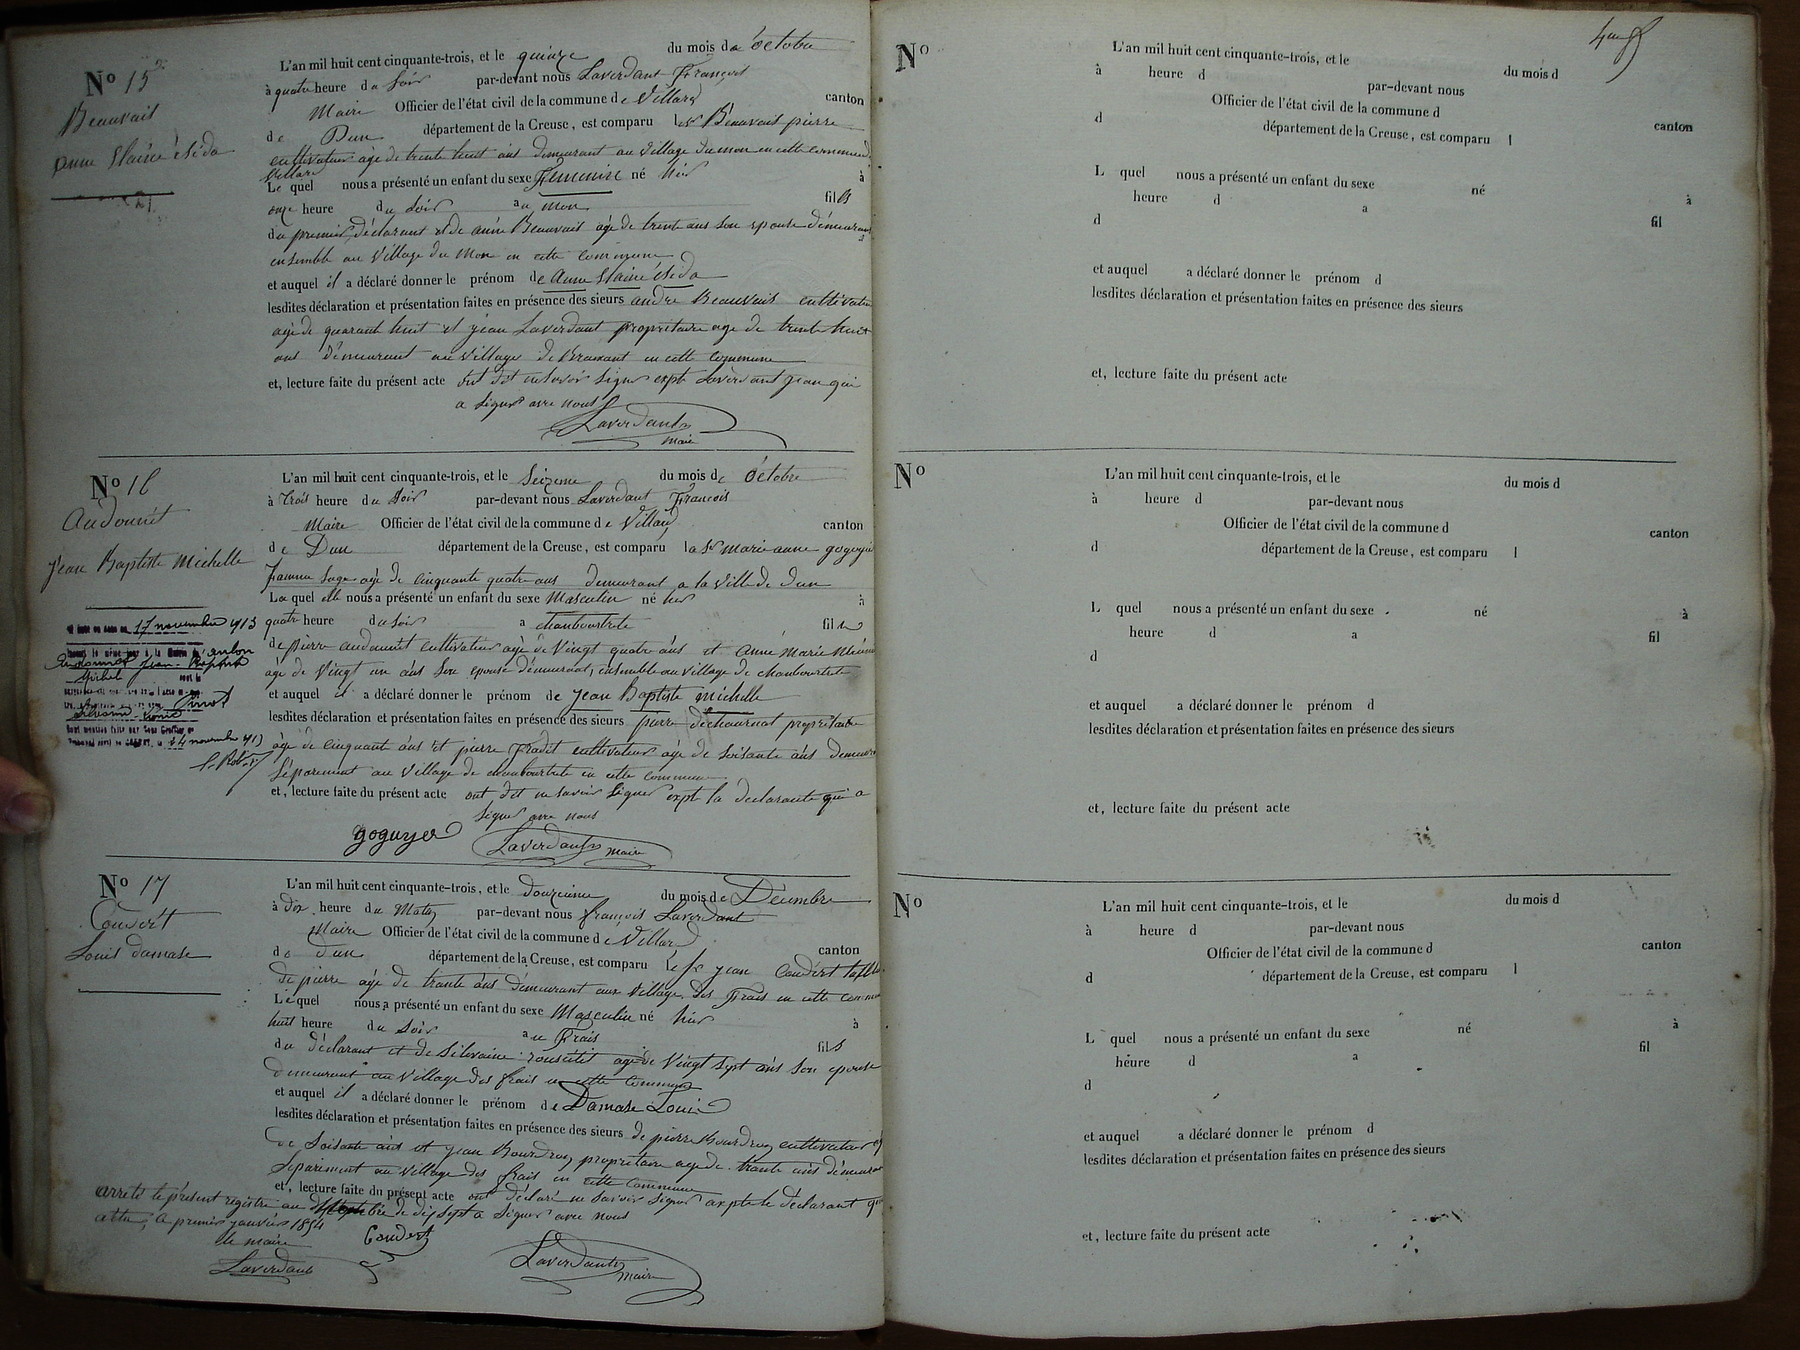 No 15
Beauvais
anne
L'an mil huit cent cinquante-trois, et le quinze du mois de octobre
à quatre heure du soir par-devant nous Laverdant François
Maire Officier de l'état civil de la commune de Villard canton
de Dun département de la Creuse, est comparu le Sr Beauvais pierre
cultivateur agé de trente huit ans demeurant au village du mon en cette commune
Villard
Le quel nous a présenté un enfant du sexe Féminine né hier à
onze heure du soir au mon fils
du premier déclarant et de anne Beauvais agé de trente ans son epouse démeurant
ensemble au village du Mon en cette commune
et auquel il a déclaré donner le prénom de Anne
lesdites déclaration et présentation faites en présence des sieurs andre Beauvais cultivateur
agé de quarante huit et jean Laverdant propriétaire age de trente huit
ans démeurant au village de Bramant en cette commune
et, lecture faite du présent acte ont dit ne savoir signer expt Laverdant jean qui
a signer avec nous
Laverdant
maire
No 16
Audounet
Jean Baptiste Michelle
17 novembre 1913
Jean-Baptiste
14 novembre 1913
L'an mil huit cent cinquante-trois, et le Seizieme du mois de Octobre
à trois heure du soir par-devant nous Laverdant François
Maire Officier de l'état civil de la commune de Villard canton
de Dun département de la Creuse, est comparu la Se marie anne goguyer
famme sage agé de cinquante quatre ans demeurant a la ville de dun
La quel elle nous a présenté un enfant du sexe Masculin né hier à
quatre heure du soir a chambourtrete fils
de pierre audounet cultivateur agé de Vingt quatre ans et Anne Marie
agé de vingt un ans son epouse démeurant, ensemble au village de chambourtrete
et auquel il a déclaré donner le prénom de Jean Baptiste michelle
lesdites déclaration et présentation faites en présence des sieurs pierre dechaumat propriétaire
agé de cinquante ans et pierre Pradit cultivateur agé de soisante ans demeurant
séparement au village de chambourtrete en cette commune
et, lecture faite du présent acte ont dit ne savoir signer expt la declarante qui a
signer avec nous
goguyer Laverdant maire
No 17
Coudert
Louis damase
L'an mil huit cent cinquante-trois, et le douzieme du mois de Décembre
à dix heure du Matin par-devant nous françois Laverdant
Maire Officier de l'état civil de la commune de Villard canton
de dun département de la Creuse, est comparu le Sr jean Coudert
de pierre agé de trante ans démeurant aux village des Frais en cette commune
Le quel nous a présenté un enfant du sexe Masculin né hier à
huit heure du soir au Frais fils
du déclarant et de Silvaine agé de Vingt sept ans son epouse
demeurant au village des frais en cette commune
et auquel il a déclaré donner le prénom de Damase Louis
lesdites déclaration et présentation faites en présence des sieurs de pierre Bourdroq cultivateur
de soisante ans et jean Bourdroq propriétaire agé de trante ans démeurant
séparement au village des frais en cette commune
et, lecture faite du présent acte ont déclaré ne savoir signer expte le déclarant qui
arrete le présent registre au de dix sept a signer avec nous
attes, a premier janvier 1854
le maire Coudert
Laverdant Laverdant
maire
No L'an mil huit cent cinquante-trois, et le du mois d
à heure d par-devant nous
Officier de l'état civil de la commune d canton
d département de la Creuse, est comparu l
L quel nous a présenté un enfant du sexe né à
heure d a fil
d
et auquel a déclaré donner le prénom d
lesdites déclaration et présentation faites en présence des sieurs
et, lecture faite du présent acte
No L'an mil huit cent cinquante-trois, et le du mois d
à heure d par-devant nous
Officier de l'état civil de la commune d canton
d département de la Creuse, est comparu l
L quel nous a présenté un enfant du sexe né à
heure d a fil
d
et auquel a déclaré donner le prénom d
lesdites déclaration et présentation faites en présence des sieurs
et, lecture faite du présent acte
No L'an mil huit cent cinquante-trois, et le du mois d
à heure d par-devant nous
Officier de l'état civil de la commune d canton
d département de la Creuse, est comparu l
L quel nous a présenté un enfant du sexe né à
heure d a fil
d
et auquel a déclaré donner le prénom d
lesdites déclaration et présentation faites en présence des sieurs
et, lecture faite du présent acte